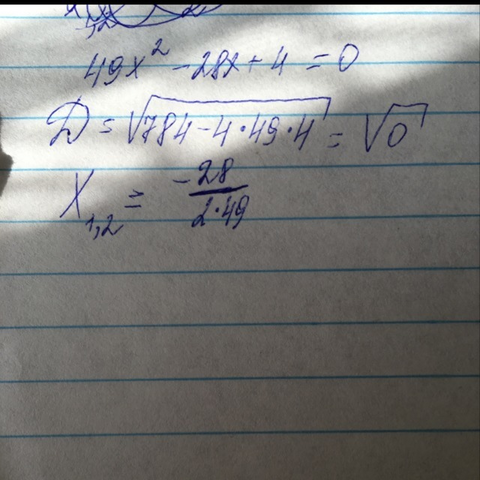 49x² - 28x + 4 = 0
D = √784 - 4·49·4 = √0
X₁,₂ = -28 / 2·49